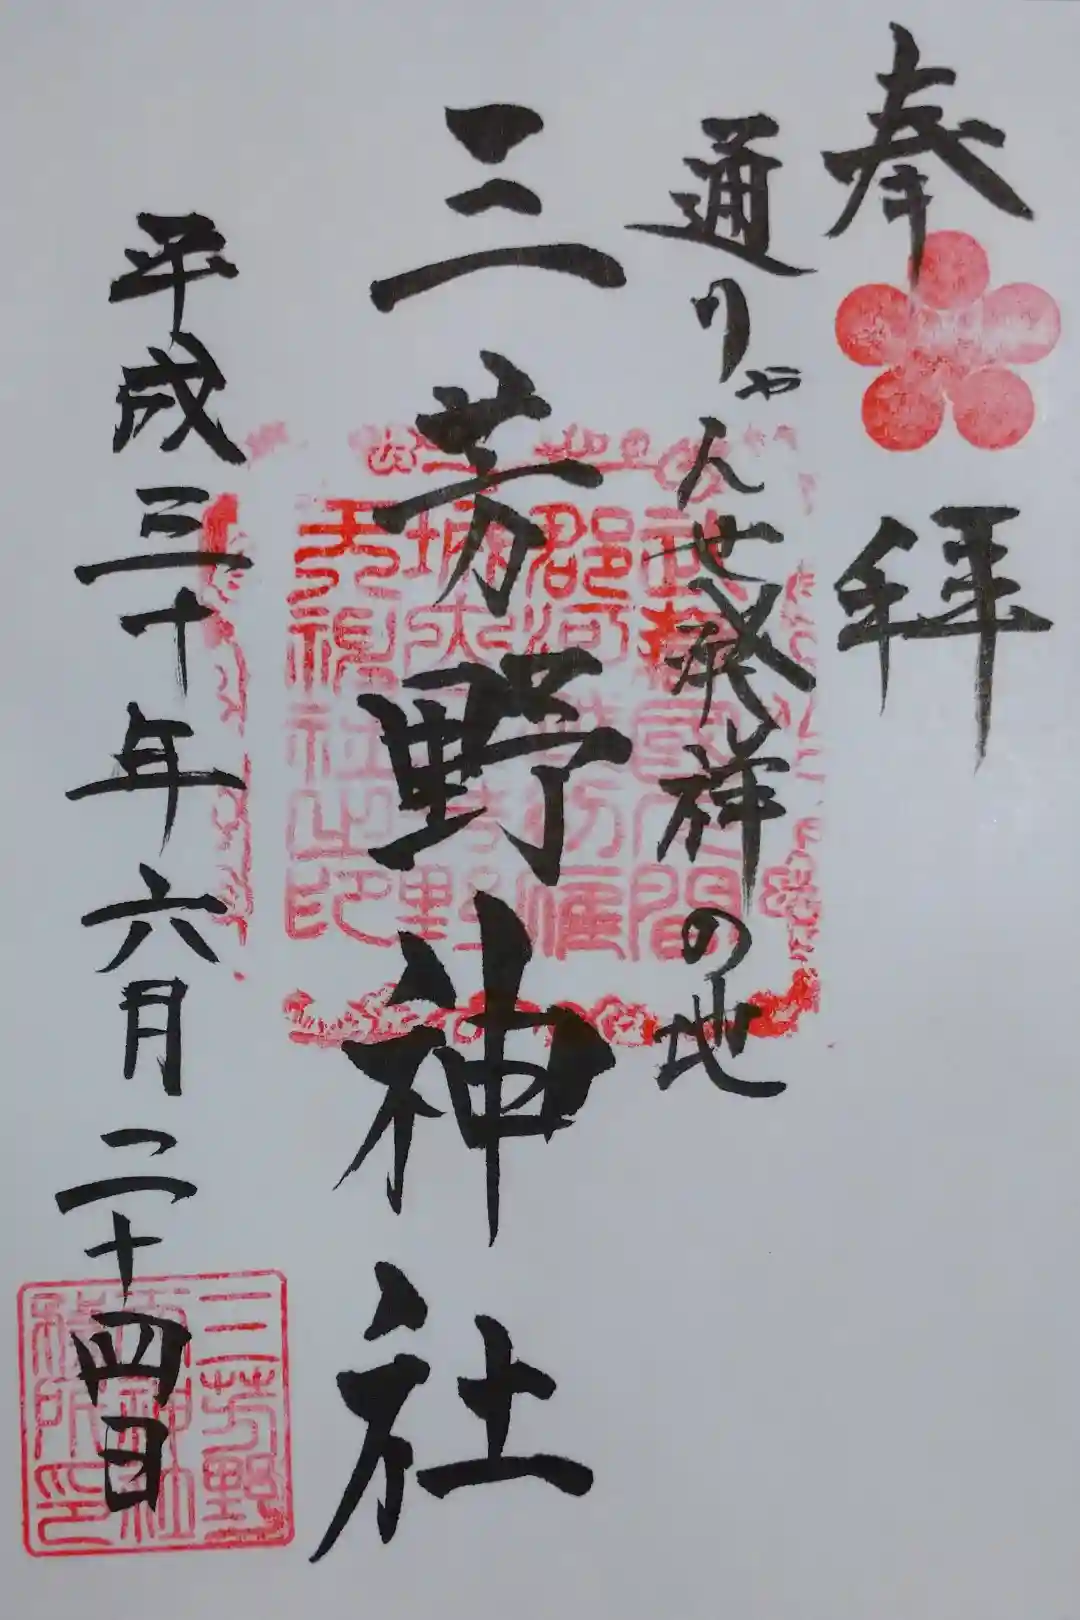 奉拝
通りゃんせ発祥の地
三芳野神社
平成三十年六月二十四日
武蔵國入間
郡河越初雁
城大三芳野
天神社之印
三芳野
神社
務所印